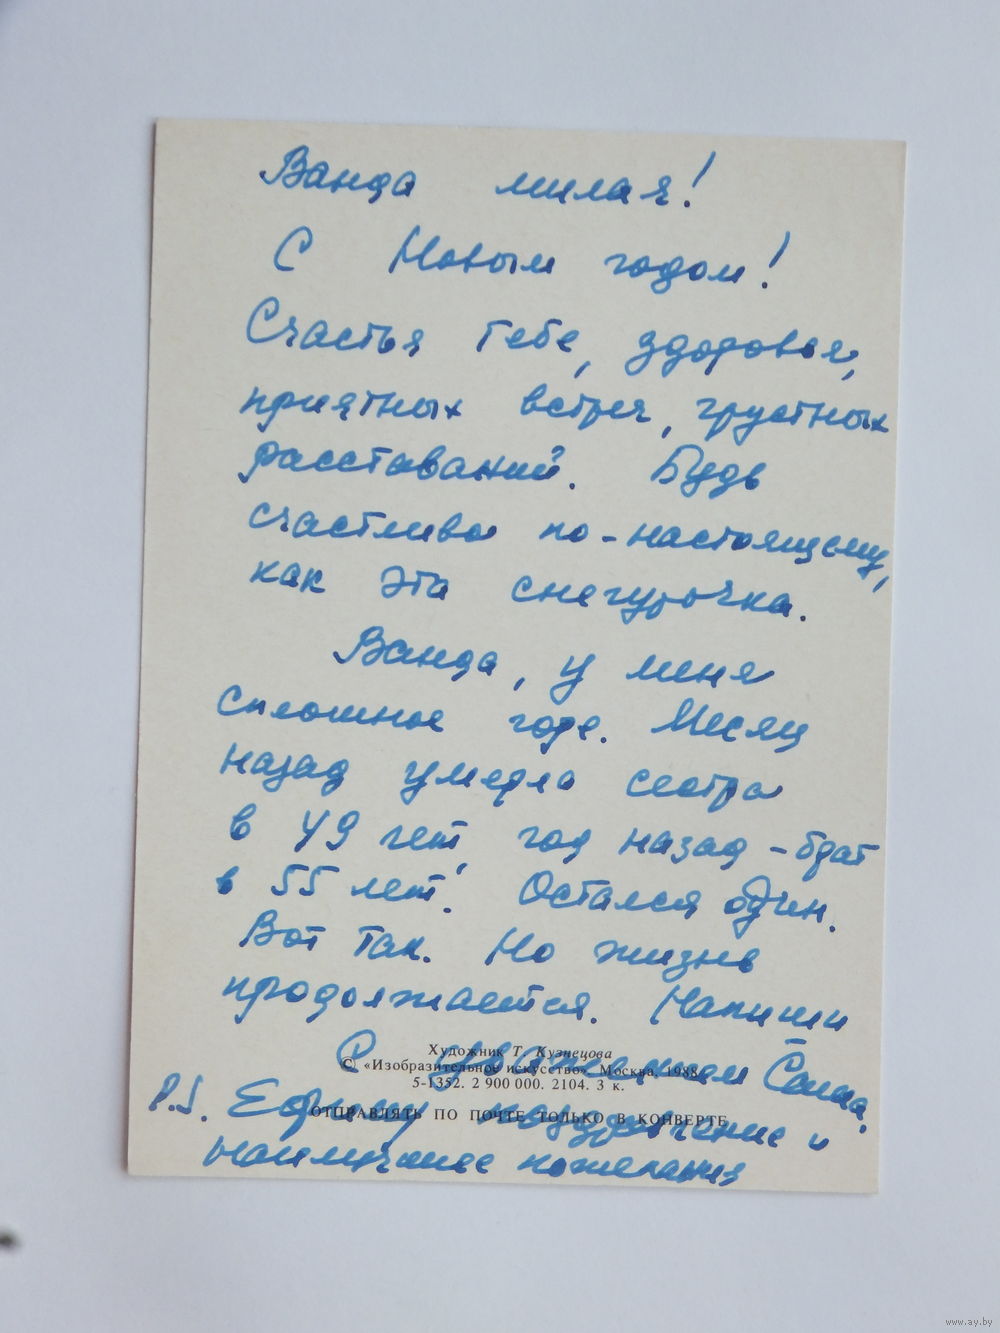 Ванда милая!
С Новым годом!
Счастья тебе, здоровья,
приятных встреч, грустных
расставаний. Будь
счастлива по-настоящему,
как эта снегурочка.
Ванда, у меня
сплошное горе. Месяц
назад умерла сестра
в 49 лет, год назад - брат
в 55 лет! Остался один.
Вот так. Но жизнь
продолжается. Напиши
Художник Т. Кузнецова
С уважением Саша.
© «Изобразительное искусство». Москва. 1988
5-1352. 2 900 000. 2104. 3 к.
P.S. Ефиму поздравление и
ОТПРАВЛЯТЬ ПО ПОЧТЕ ТОЛЬКО В КОНВЕРТЕ
наилучшие пожелания
www.ay.by